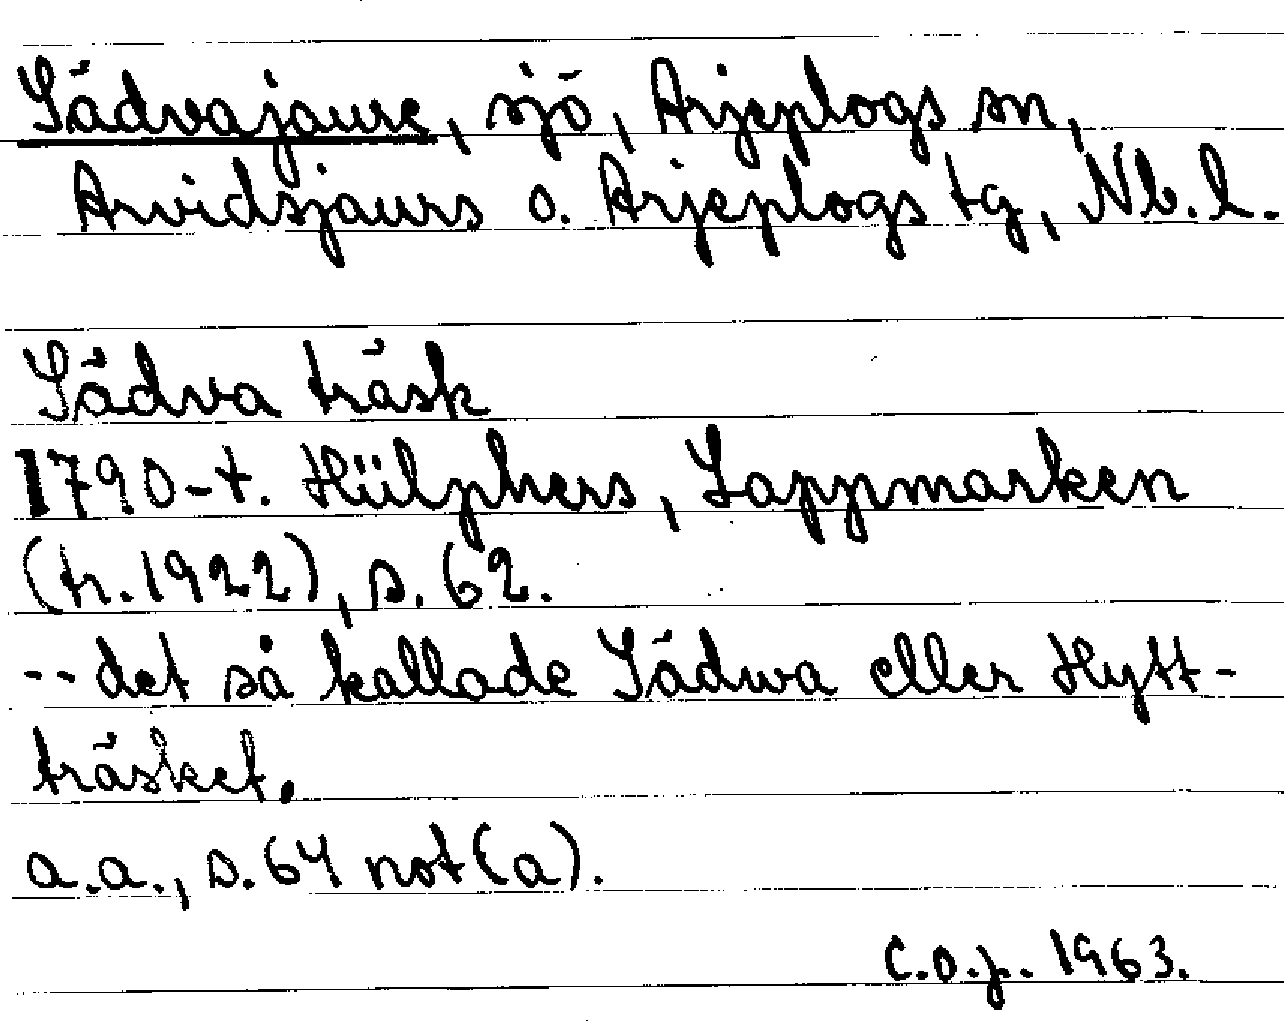 Sädvajaure, sjö, Arjeplogs sn,
Arvidsjaurs o. Arjeplogs tg, Nb.l.
Sädva träsk
1790-t. Hülphers, Lappmarken
(tr. 1922), s. 62.
-- det så kallade Sädwa eller Hytt-
träsket.
a.a., s. 64 not (a).
C.O.J. 1963.